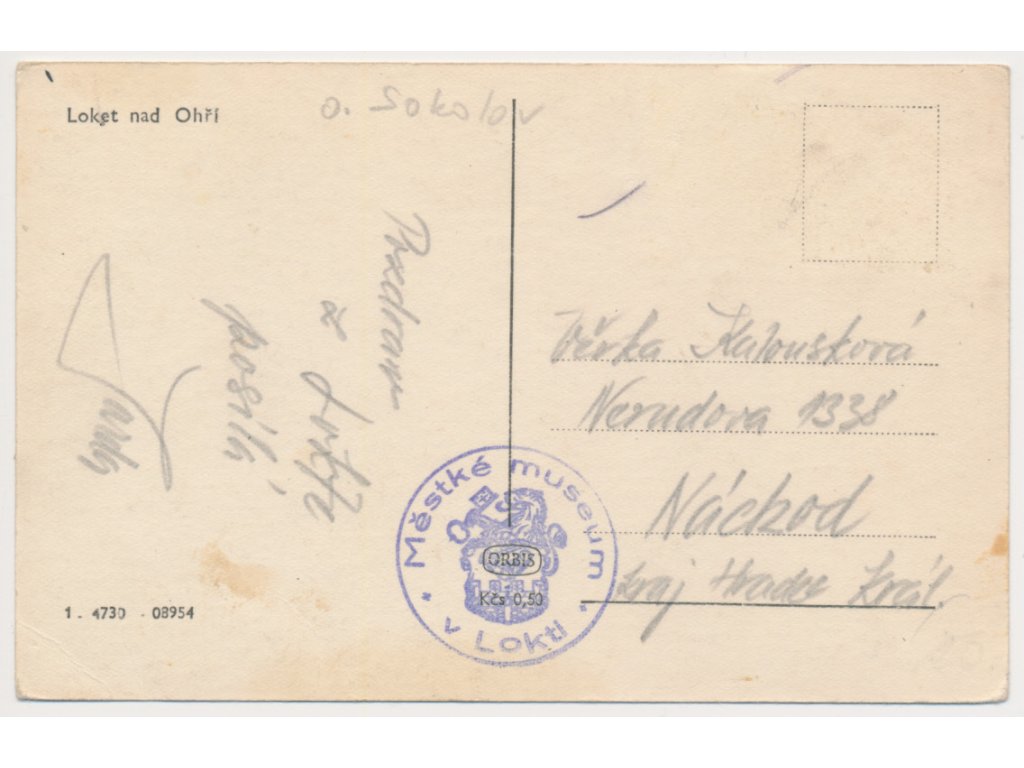 Loket nad Ohří
o. Sokolov
Pozdrav
z
posílá
Věrka Kalousková
Nerudova 1338
Náchod
kraj Hradec Král.
Městké museum
v Lokti
ORBIS
Kčs 0,50
1 - 4730 - 08954